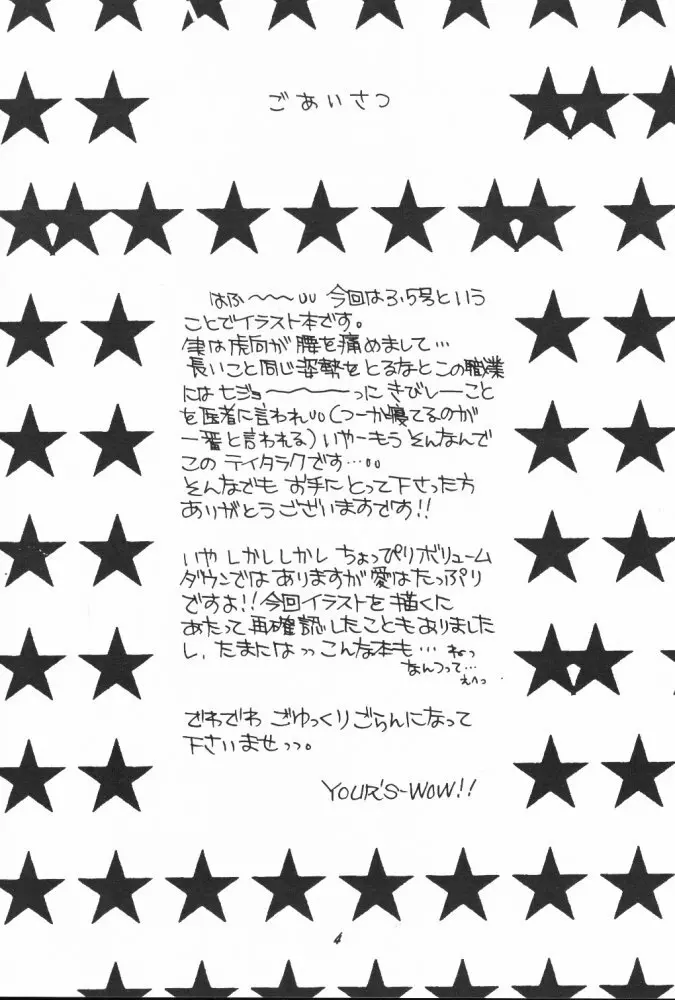 ごあいさつ
はふ〜〜〜 今回は3.5号という
ことでイラスト本です。
実は虎向が腰を痛めまして…
長いこと同じ姿勢をとるなとこの職業
には七ジョ〜〜〜〜っに きびしーこと
を医者に言われ(つーか寝てるのが
一番と言われる)いやーもう そんなんで
この テイタラクです…
そんなでも お手にとって下さった方
ありがとうございますです!!
いや しかししかし ちょっぴりボリューム
ダウンでは ありますが愛はたっぷり
ですよ!!今回イラストを 描くに
あたって 再確認したこともありました
し、たまにはっっ こんな本も…ねっ
なんつって…
えへっ
でわでわ ごゆっくりごらんになって
下さいませっっ。
YOUR'S-WOW!!
4